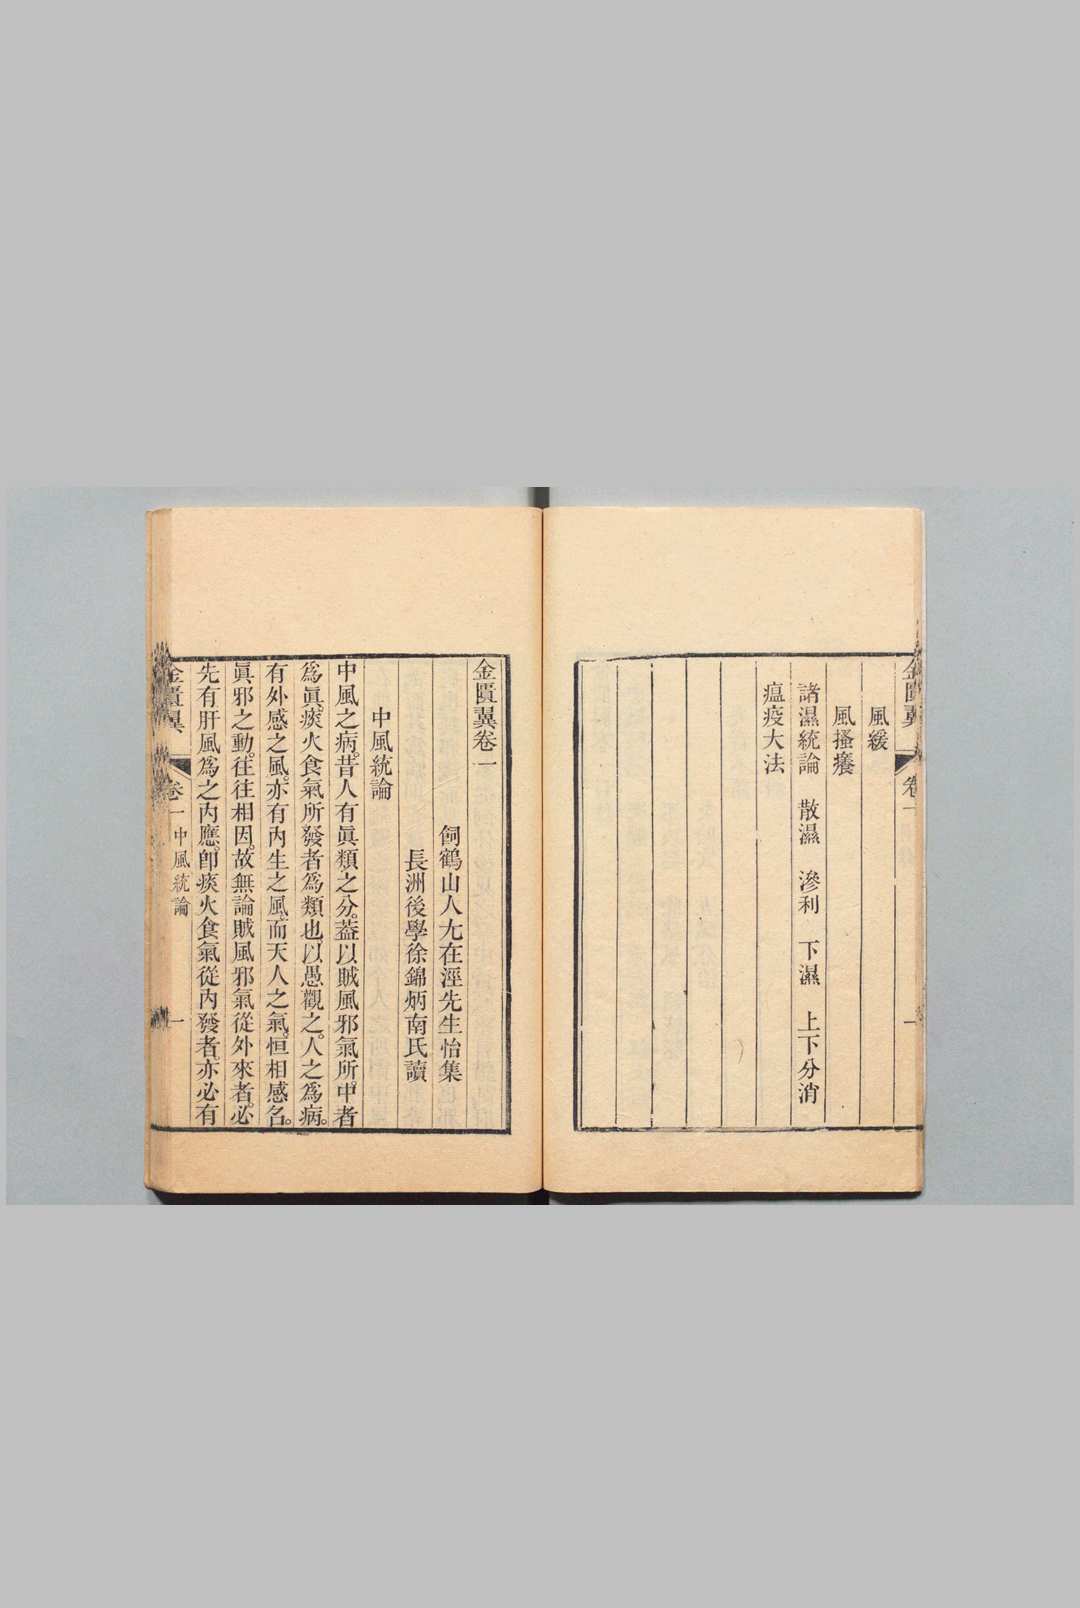 金匱翼
卷一
一
風緩
風搔癢
諸濕統論　散濕　滲利　下濕　上下分消
瘟疫大法
金匱翼卷一
飼鶴山人尤在涇先生怡集
長洲後學徐錦炳南氏讀
中風統論
中風之病。昔人有眞類之分。葢以賊風邪氣所中者
爲眞。痰火食氣所發者爲類也。以愚觀之。人之爲病。
有外感之風。亦有內生之風。而天人之氣。恒相感名。
眞邪之動。往往相因。故無論賊風邪氣從外來者。必
先有肝風爲之內應。卽痰火食氣從內發者。亦必有
金匱翼
卷一
中風統論
一